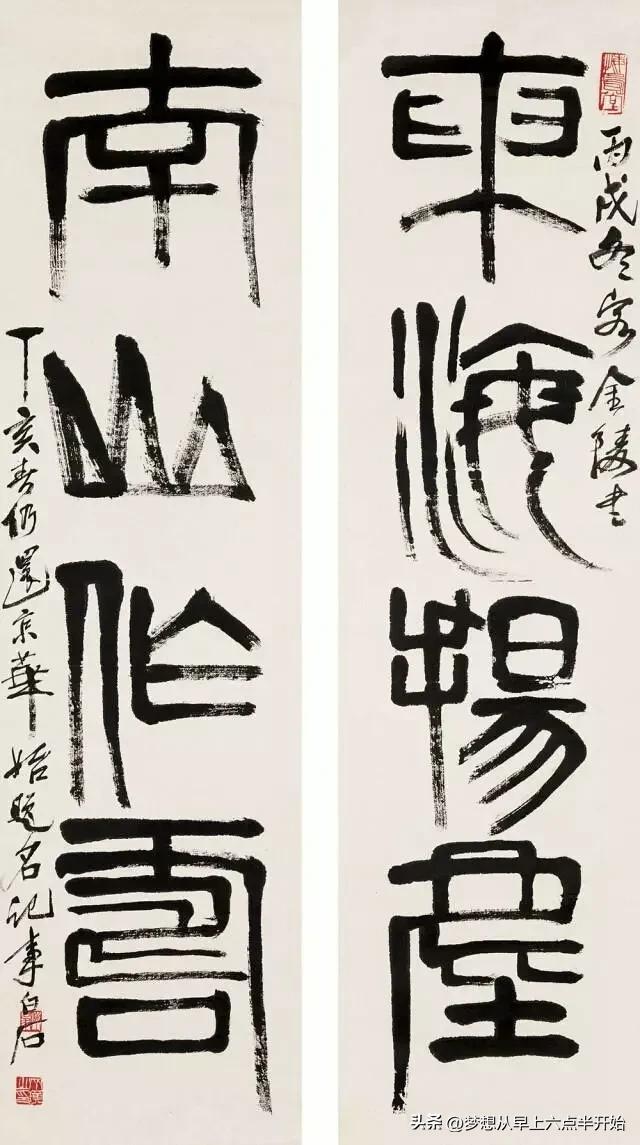 東海揚塵
丙戌冬客金陵書
南山作壽
丁亥春仍還京華始題名記事白石
头条 @梦想从早上六点半开始